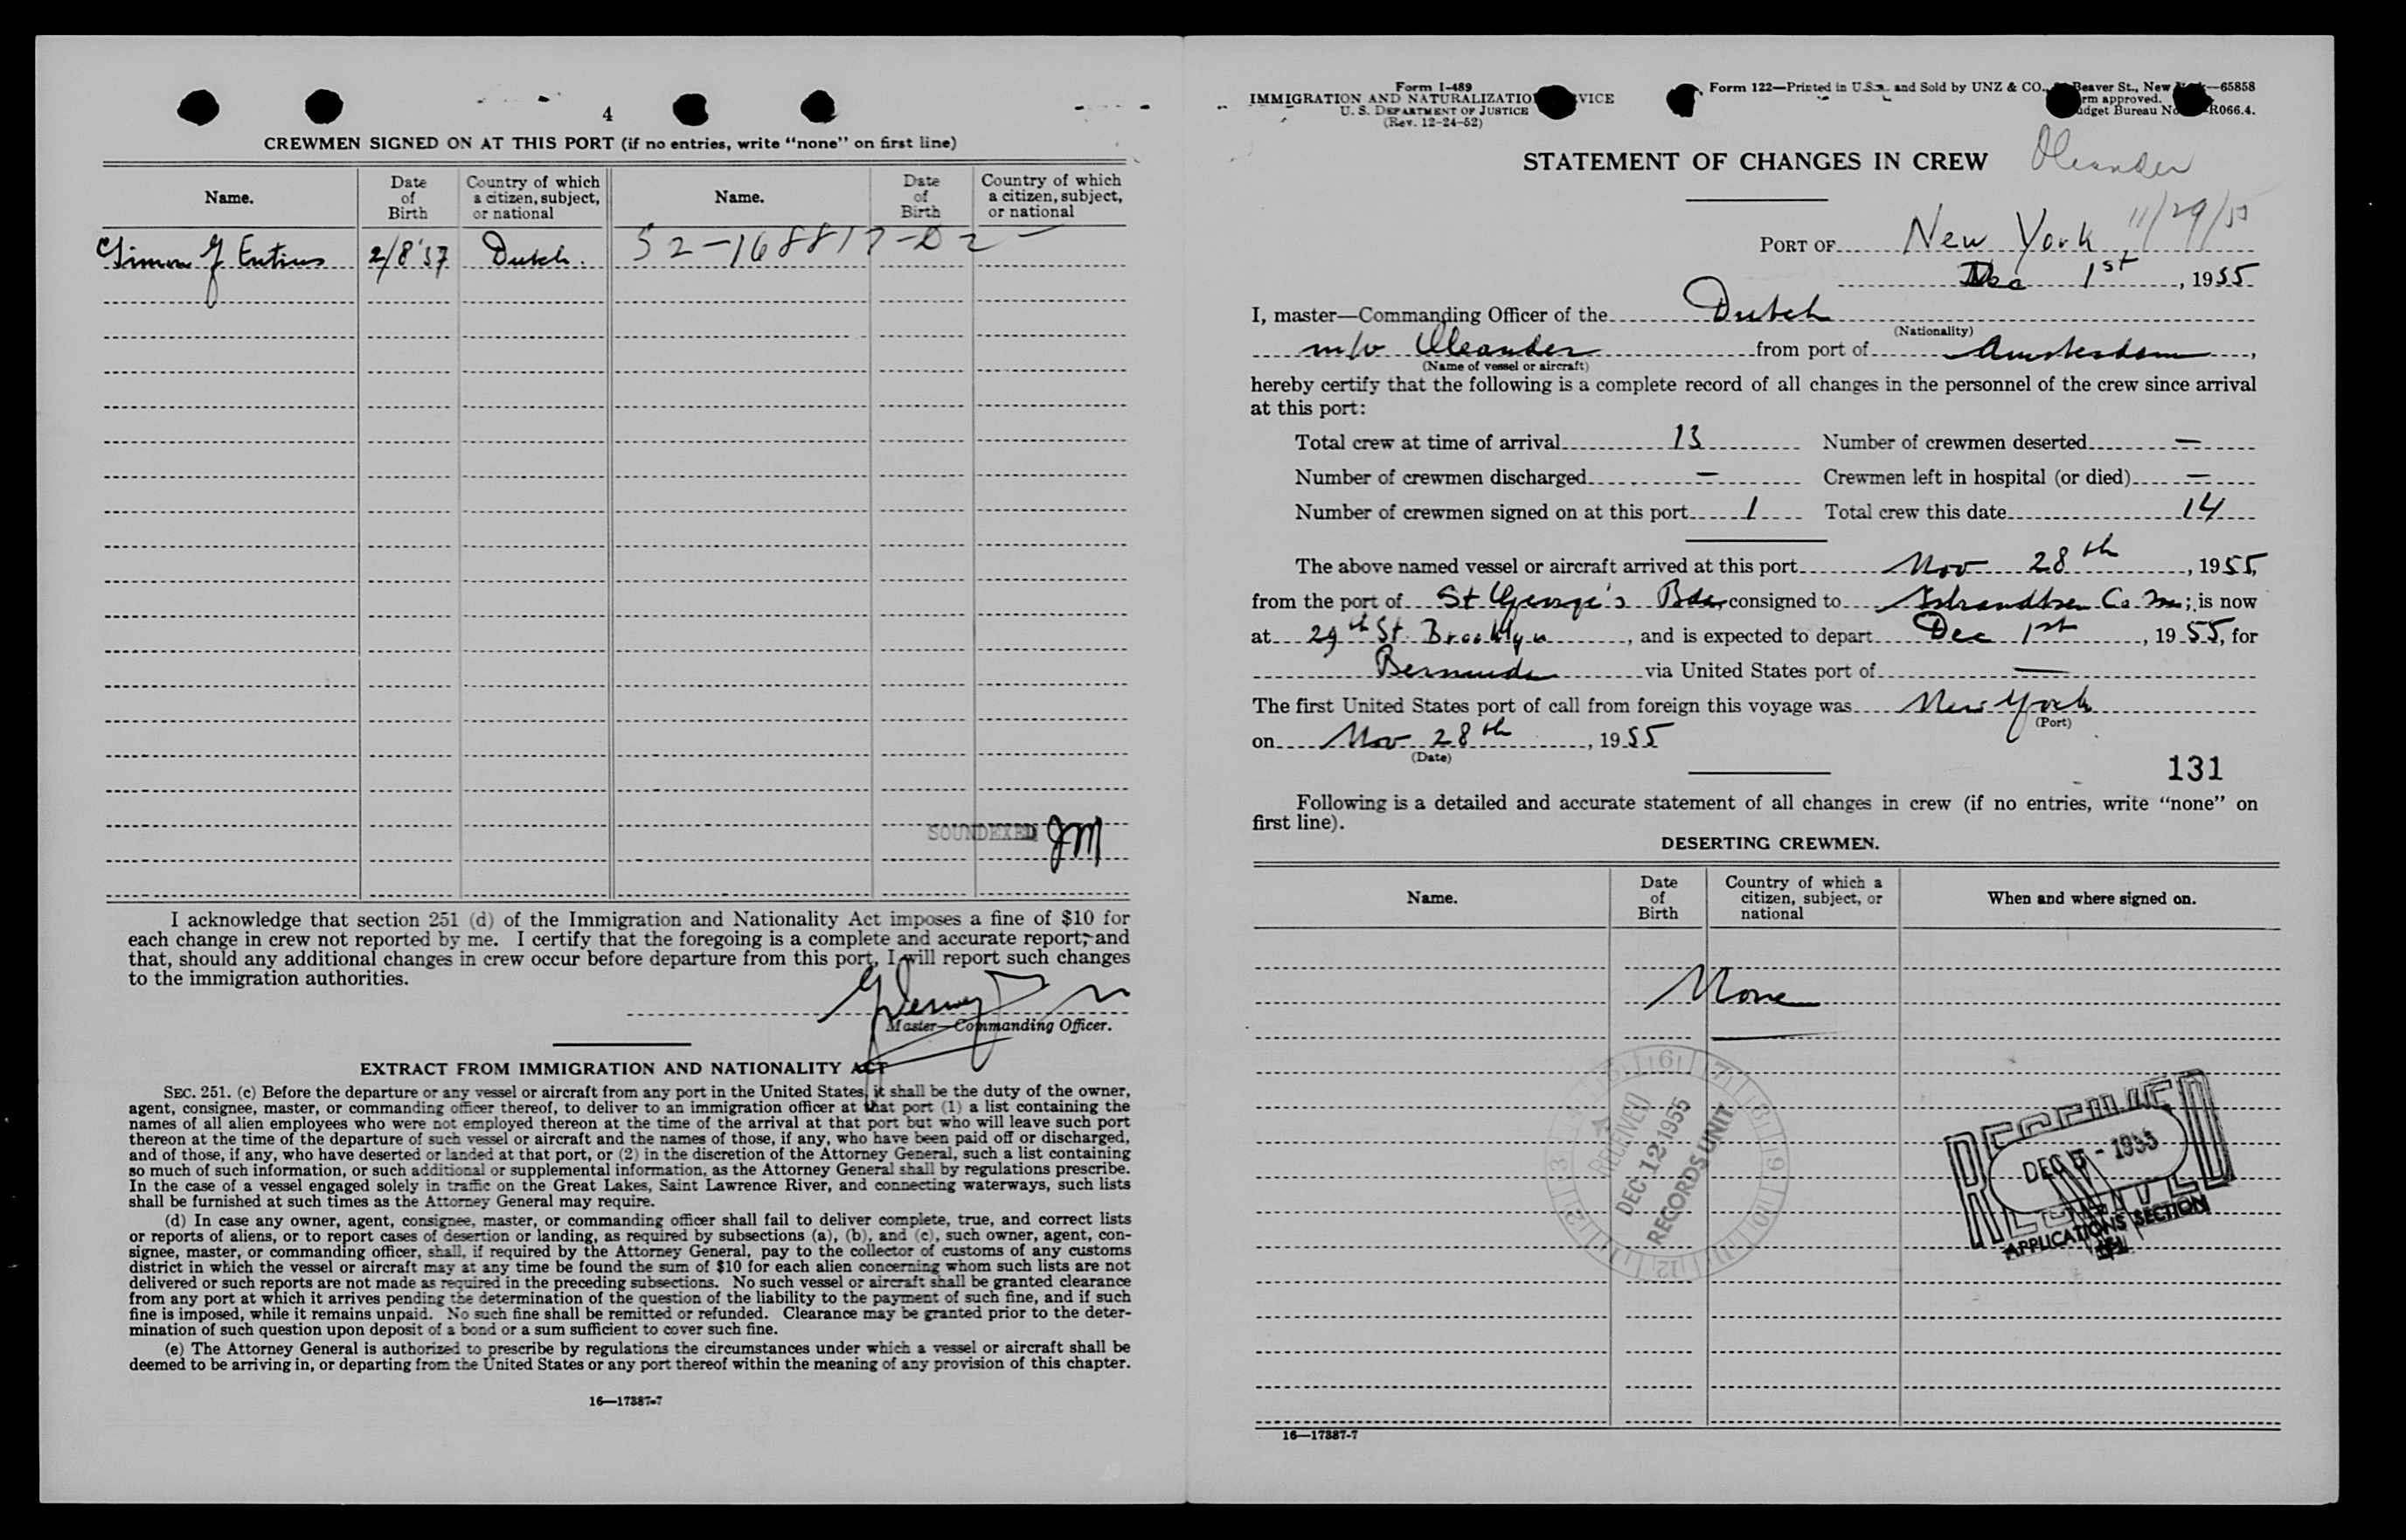 4
CREWMEN SIGNED ON AT THIS PORT (if no entries, write “none” on first line)
Name.
Date of Birth
Country of which a citizen, subject, or national
Name.
Date of Birth
Country of which a citizen, subject, or national
Simon J Entius 2/8 '37 Dutch. 52-168817-D2 —
SOUNDEXED JM
I acknowledge that section 251 (d) of the Immigration and Nationality Act imposes a fine of $10 for
each change in crew not reported by me. I certify that the foregoing is a complete and accurate report; and
that, should any additional changes in crew occur before departure from this port, I will report such changes
to the immigration authorities.
Master—Commanding Officer.
EXTRACT FROM IMMIGRATION AND NATIONALITY ACT
SEC. 251. (c) Before the departure or any vessel or aircraft from any port in the United States, it shall be the duty of the owner,
agent, consignee, master, or commanding officer thereof, to deliver to an immigration officer at that port (1) a list containing the
names of all alien employees who were not employed thereon at the time of the arrival at that port but who will leave such port
thereon at the time of the departure of such vessel or aircraft and the names of those, if any, who have been paid off or discharged,
and of those, if any, who have deserted or landed at that port, or (2) in the discretion of the Attorney General, such a list containing
so much of such information, or such additional or supplemental information, as the Attorney General shall by regulations prescribe.
In the case of a vessel engaged solely in traffic on the Great Lakes, Saint Lawrence River, and connecting waterways, such lists
shall be furnished at such times as the Attorney General may require.
(d) In case any owner, agent, consignee, master, or commanding officer shall fail to deliver complete, true, and correct lists
or reports of aliens, or to report cases of desertion or landing, as required by subsections (a), (b), and (c), such owner, agent, con-
signee, master, or commanding officer, shall, if required by the Attorney General, pay to the collector of customs of any customs
district in which the vessel or aircraft may at any time be found the sum of $10 for each alien concerning whom such lists are not
delivered or such reports are not made as required in the preceding subsections. No such vessel or aircraft shall be granted clearance
from any port at which it arrives pending the determination of the question of the liability to the payment of such fine, and if such
fine is imposed, while it remains unpaid. No such fine shall be remitted or refunded. Clearance may be granted prior to the deter-
mination of such question upon deposit of a bond or a sum sufficient to cover such fine.
(e) The Attorney General is authorized to prescribe by regulations the circumstances under which a vessel or aircraft shall be
deemed to be arriving in, or departing from the United States or any port thereof within the meaning of any provision of this chapter.
16—17387-7
Form I-489
IMMIGRATION AND NATURALIZATIO VICE
U. S. DEPARTMENT OF JUSTICE
(Rev. 12-24-52)
Form 122—Printed in U.S.A. and Sold by UNZ & CO., Beaver St., New —65858
rm approved.
dget Bureau No R066.4.
STATEMENT OF CHANGES IN CREW Oleander
PORT OF New York 11/29/55
Dec 1st, 1955
I, master—Commanding Officer of the Dutch
(Nationality)
m/v Oleander from port of Amsterdam,
(Name of vessel or aircraft)
hereby certify that the following is a complete record of all changes in the personnel of the crew since arrival
at this port:
Total crew at time of arrival 13 Number of crewmen deserted —
Number of crewmen discharged — Crewmen left in hospital (or died) —
Number of crewmen signed on at this port 1 Total crew this date 14
The above named vessel or aircraft arrived at this port Nov 28th, 1955,
from the port of St George's Bda, consigned to Isbrandtsen Co. Inc; is now
at 29th St. Brooklyn, and is expected to depart Dec 1st, 1955, for
Bermuda via United States port of —
The first United States port of call from foreign this voyage was New York
(Port)
on Nov 28th, 1955
(Date)
131
Following is a detailed and accurate statement of all changes in crew (if no entries, write “none” on
first line).
DESERTING CREWMEN.
Name.
Date of Birth
Country of which a citizen, subject, or national
When and where signed on.
None
RECEIVED
DEC 12 1955
RECORDS UNIT
RECEIVED
DEC 5 - 1955
APPLICATIONS SECTION
16—17387-7